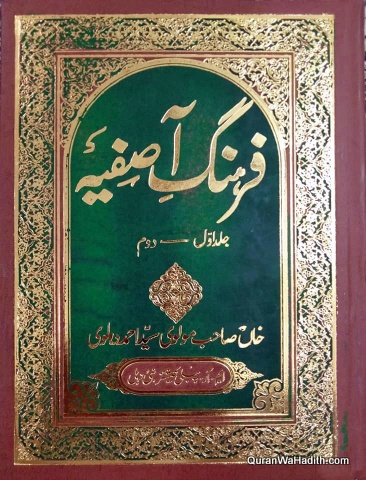 فرہنگ آصفیہ
جلد اوّل — دوم
خاں صاحب مولوی سیّد احمد دہلوی
QuranWaHadith.com